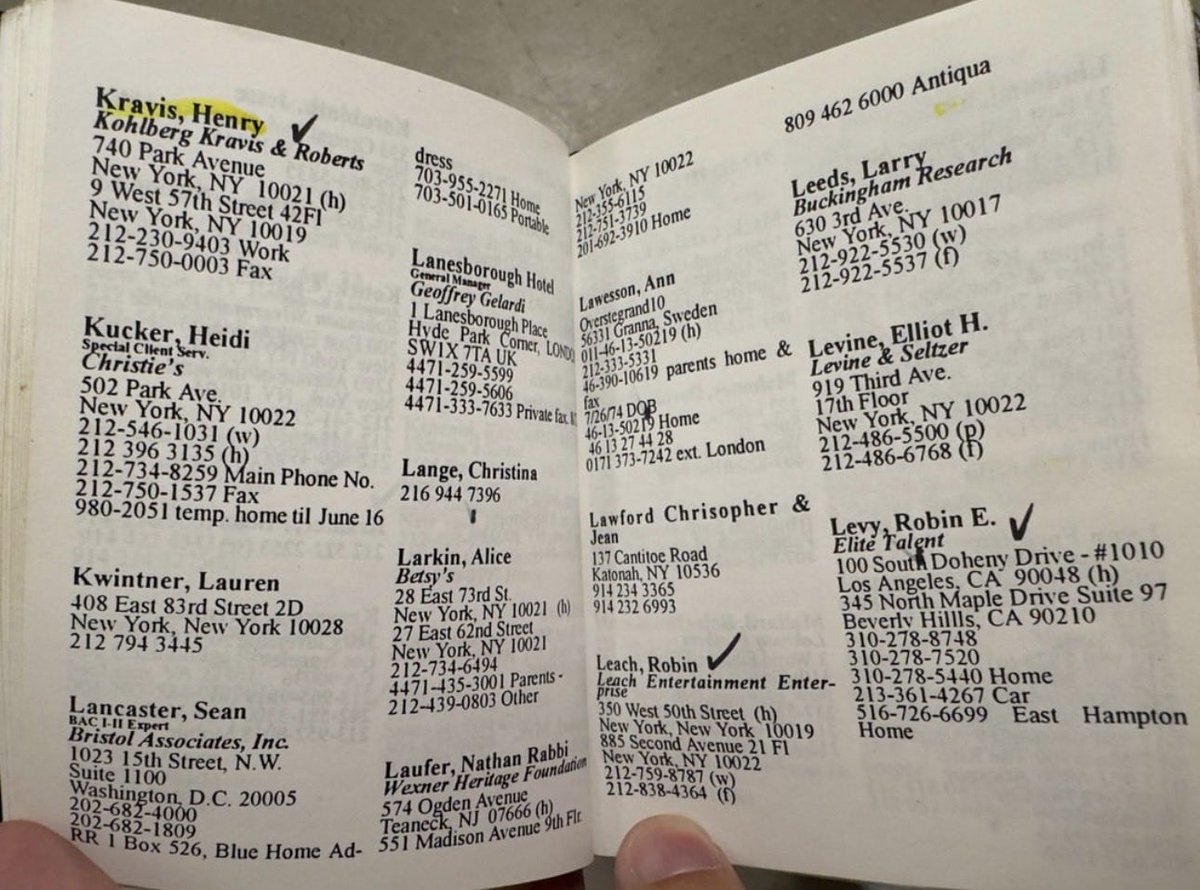 Kravis, Henry
Kohlberg Kravis & Roberts
740 Park Avenue
New York, NY 10021 (h)
9 West 57th Street 42Fl
New York, NY 10019
212-230-9403 Work
212-750-0003 Fax
Kucker, Heidi
Special Client Serv.
Christie's
502 Park Ave.
New York, NY 10022
212-546-1031 (w)
212 396 3135 (h)
212-734-8259 Main Phone No.
212-750-1537 Fax
980-2051 temp. home til June 16
Kwintner, Lauren
408 East 83rd Street 2D
New York, New York 10028
212 794 3445
Lancaster, Sean
BAC I-II Expert
Bristol Associates, Inc.
1023 15th Street, N.W.
Suite 1100
Washington, D.C. 20005
202-682-4000
202-682-1809
RR 1 Box 526, Blue Home Ad-
dress
703-955-2271 Home
703-501-0165 Portable
Lanesborough Hotel
General Manager
Geoffrey Gelardi
1 Lanesborough Place
Hyde Park Corner, LONDO
SW1X 7TA UK
4471-259-5599
4471-259-5606
4471-333-7633 Private fax
Lange, Christina
216 944 7396
Larkin, Alice
Betsy's
28 East 73rd St.
New York, NY 10021 (h)
27 East 62nd Street
New York, NY 10021
212-734-6494
4471-435-3001 Parents -
212-439-0803 Other
Laufer, Nathan Rabbi
Wexner Heritage Foundation
574 Ogden Avenue
Teaneck, NJ 07666 (h)
551 Madison Avenue 9th Flr.
New York, NY 10022
212-355-6115
212-751-3739
201-692-3910 Home
Lawesson, Ann
Overstegrand10
56331 Granna, Sweden
011-46-13-50219 (h)
212-333-5331
46-390-10619 parents home &
fax
7/26/74 DOB
46-13-50219 Home
46 13 27 44 28
0171 373-7242 ext. London
Lawford Chrisopher &
Jean
137 Cantitoe Road
Katonah, NY 10536
914 234 3365
914 232 6993
Leach, Robin
Leach Entertainment Enter-
prise
350 West 50th Street (h)
New York, New York 10019
885 Second Avenue 21 Fl
New York, NY 10022
212-759-8787 (w)
212-838-4364 (f)
809 462 6000 Antiqua
Leeds, Larry
Buckingham Research
630 3rd Ave.
New York, NY 10017
212-922-5530 (w)
212-922-5537 (f)
Levine, Elliot H.
Levine & Seltzer
919 Third Ave.
17th Floor
New York, NY 10022
212-486-5500 (p)
212-486-6768 (f)
Levy, Robin E.
Elite Talent
100 South Doheny Drive - #1010
Los Angeles, CA 90048 (h)
345 North Maple Drive Suite 97
Beverly Hillls, CA 90210
310-278-8748
310-278-7520
310-278-5440 Home
213-361-4267 Car
516-726-6699 East Hampton
Home